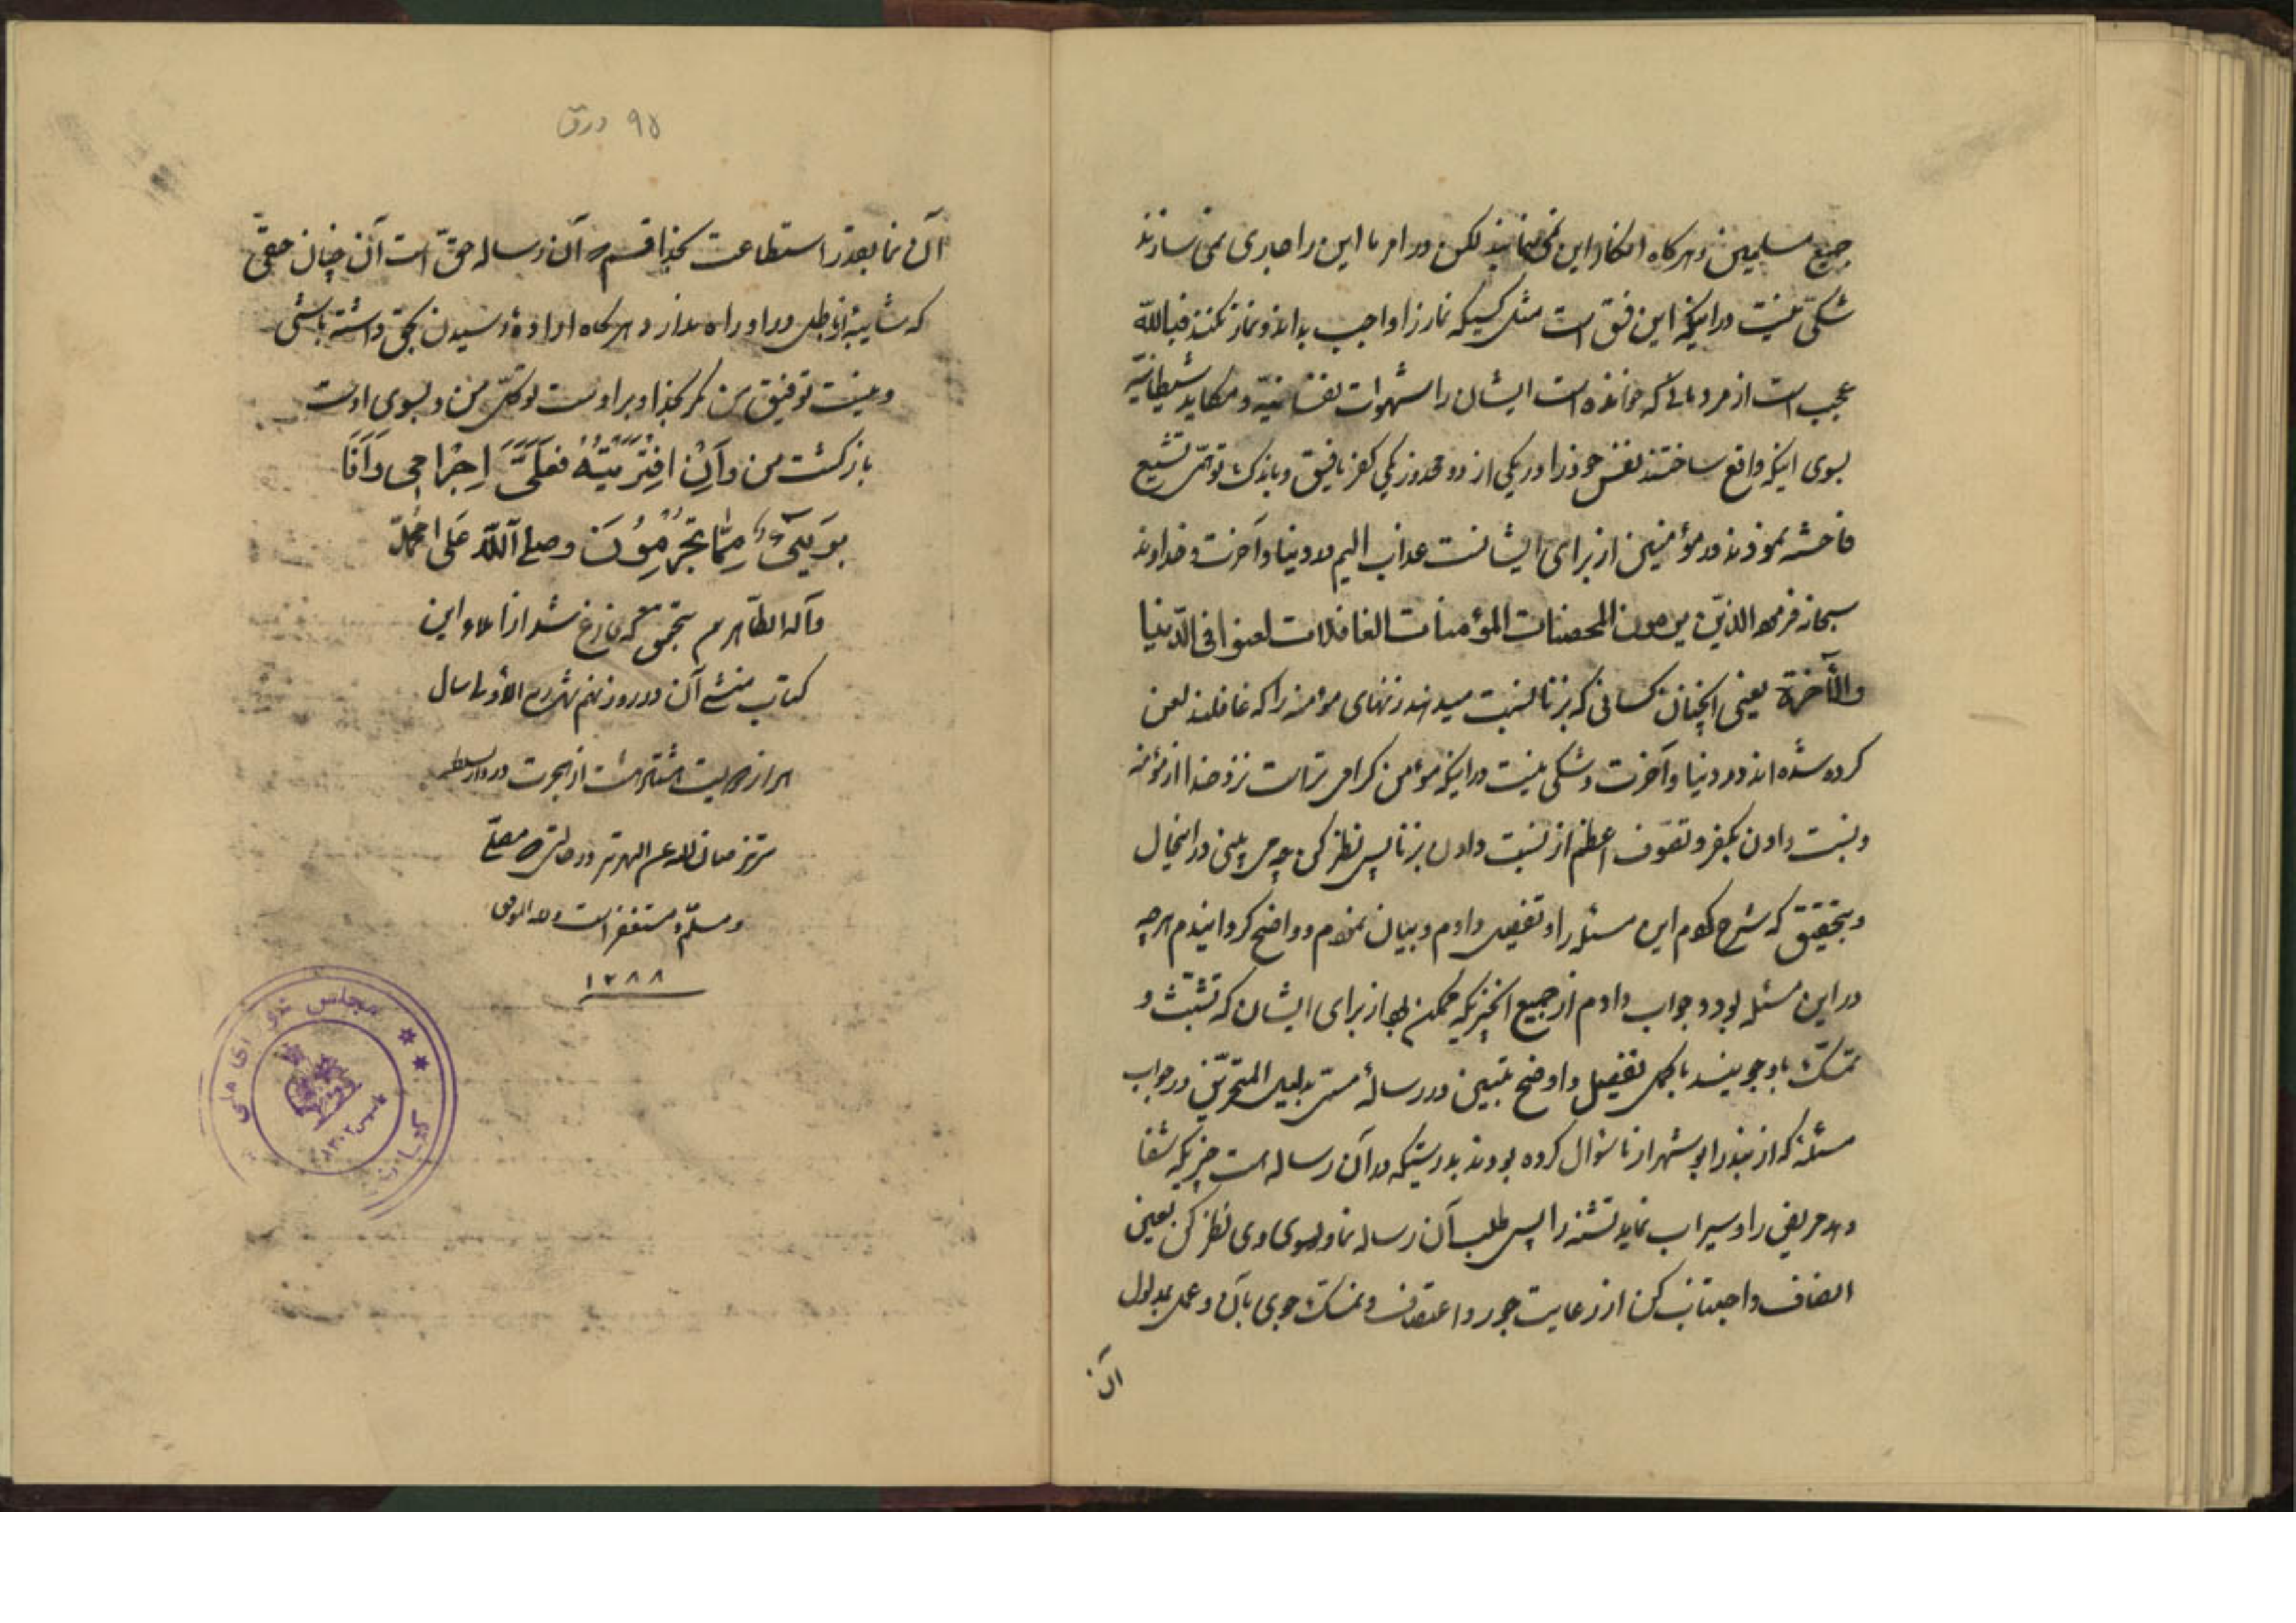 جمیع مسلمین و هرگاه انکار این نمی‌نمایند لکن در امر ما این را جاری نمی سازند
شکی نیست در اینکه این فسق است مثل کسیکه نماز را واجب بداند و نماز نکند فیاللّه
عجب است از مردمانی که خوانده است ایشان را شهوات نفسانیّه و مکاید شیطانیّه
بسوی اینکه واقع ساختند نفس خود را در یکی از دو محذور یکی کفر یا فسق و باندک توهّمی تشیع
فاحشه نمودند در مؤمنین از برای ایشانست عذاب الیم در دنیا و آخرت و خداوند
سبحانه فرموده الذین یرمون المحصنات المؤمنات الغافلات لعنوا فی الدّنیا
والآخرة یعنی آنچنان کسانی که بزنا نسبت میدهند زنهای مؤمنه را که غافلند لعن
کرده شده‌اند در دنیا و آخرت و شکی نیست در اینکه مؤمن گرامی تر است نزد خدا از مؤمنه
و نسبت دادن بکفر و تصوف اعظم از نسبت دادن بزنا پس نظر کن چه می بینی در اینحال
و بتحقیق که شرح کردم این مسئله را و تفصیل دادم و بیان نمودم و واضح گردانیدم هرچه
در این مسئله بود و جواب دادم از جمیع آنچیزیکه ممکن بود از برای ایشان که تشبّث و
تمسّک باو جویند باکمل تفصیل و اوضح تبیین در رسالهٔ مسمّی بدلیل المتحیّرین در جواب
مسئلهٔ که از بندر ابوشهر از ما سؤال کرده بودند بدرستیکه در آن رساله است چیزیکه شفا
دهد مریض را و سیراب نماید تشنه را پس طلب آن رساله نما و بسوی وی نظر کن بعین
انصاف و اجتناب کن از رعایت جور و اعتساف و تمسّک جوی بآن و عمل بمدلول
آن
٩٥ ورق
آن نما بقدر استطاعت بخدا قسم که آن رساله حقّ است آن چنان حقّی
که شایبهٔ باطل در او راه ندارد هرگاه ارادهٔ رسیدن بحق داشته باشی
و نیست توفیق من مگر بخدا و بر اوست توکّل من و بسوی اوست
بازگشت من وَاِنِ افْتَرَیْتُهُ فَعَلَیَّ اِجْرامی وَاَنَا
بَریٓءٌ مِمّا تُجْرِمُونَ وصلی اللّه عَلی مُحمّد
وآله الطّاهرین بتحقیق که فارغ شد از املاء این
کتاب منشی آن در روز نهم شهر ربیع الاول سال
هزار و دویست و پنجاه و هشت از هجرت در دار السلطنه
تبریز صان الله عن التهزیز در حالتیکه مصلّی
و مسلّم و مستغفر است والله الموفق
١٢٨٨
مجلس شورای ملی
کتابخانه
تأسیس ١٣٠٢